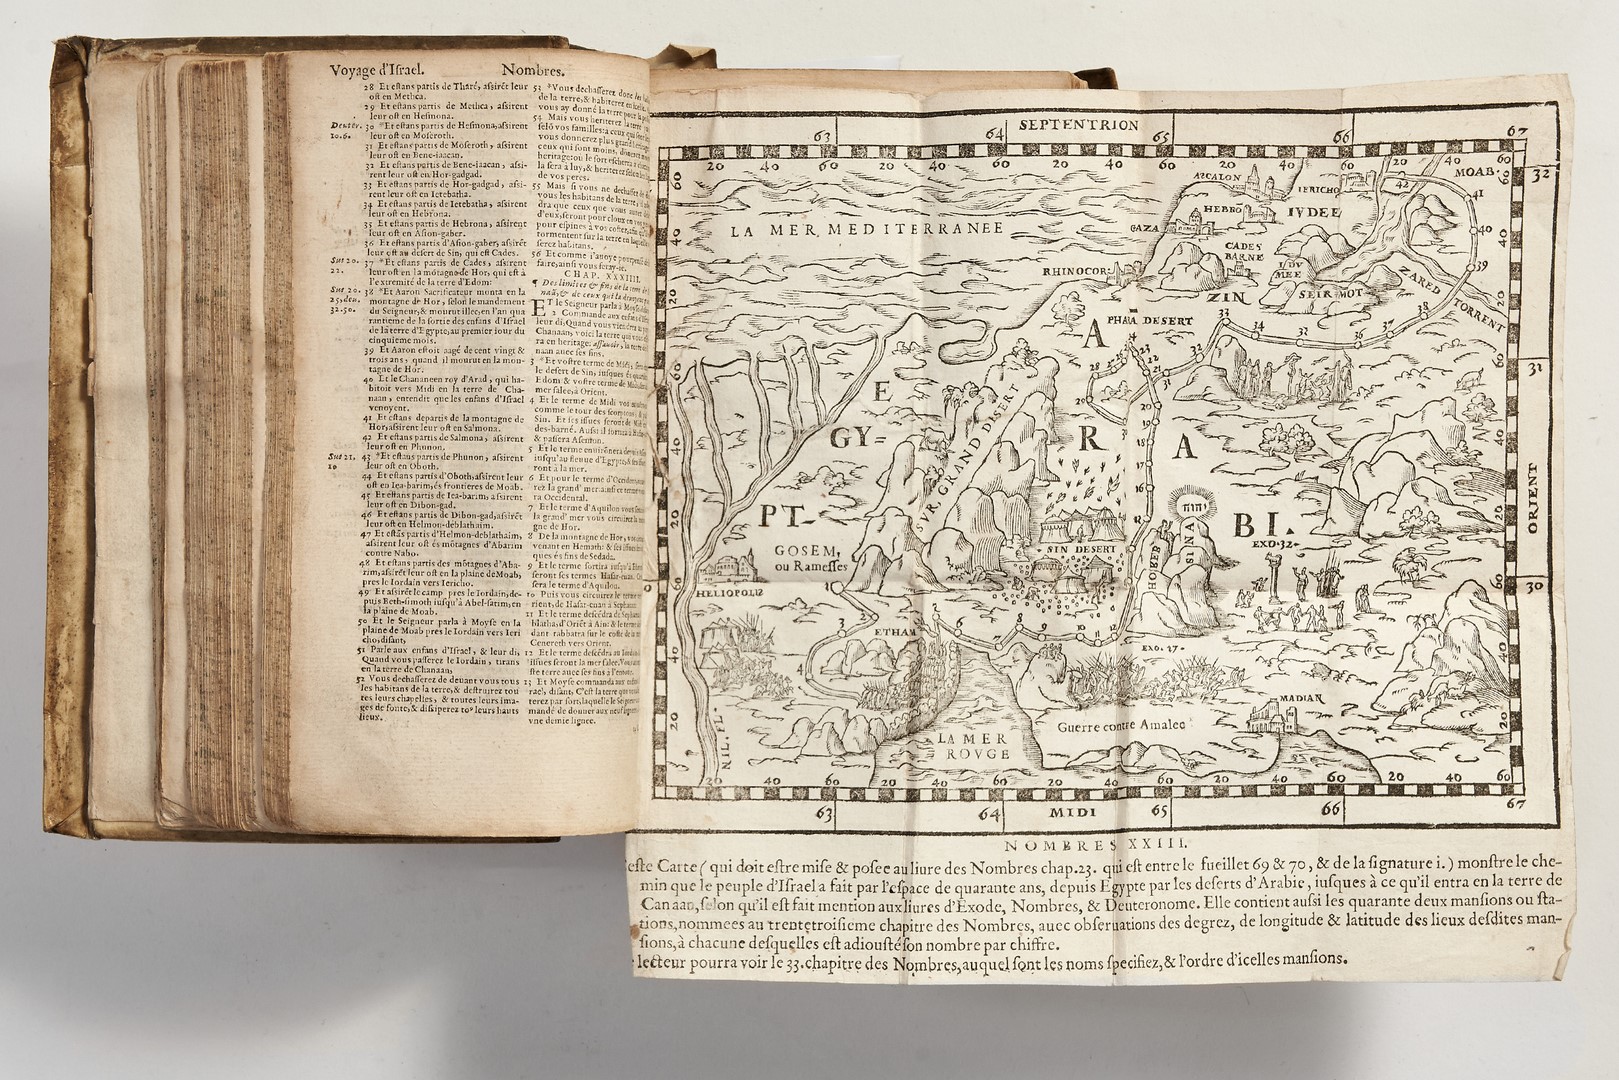 Voyage d'Israel. Nombres.
28 Et estans partis de Tharé, assirēt leur
ost en Methca.
29 Et estans partis de Methca, assirent
leur ost en Hesmona.
Deuter. 10.6.
30 *Et estans partis de Hesmona, assirent
leur ost en Moseroth.
31 Et estans partis de Moseroth, assirent
leur ost en Bene-iaacan.
32 Et estans partis de Bene-iaacan, assi-
rent leur ost en Hor-gadgad.
33 Et estans partis de Hor-gadgad, assi-
rent leur ost en Ietebatha.
34 Et estans partis de Ietebatha, assirent
leur ost en Hebrona.
35 Et estans partis de Hebrona, assirent
leur ost en Asion-gaber.
36 Et estans partis d'Asion-gaber, assirēt
leur ost au desert de Sin, qui est Cades.
Sus 20. 22.
37 *Et estans partis de Cades, assirent
leur ost en la mōtagne de Hor, qui est à
l'extremité de la terre d'Edom:
Sus 20. 25, deu. 32.50.
38 *Et Aaron Sacrificateur monta en la
montagne de Hor, selon le mandement
du Seigneur, & mourut illec, en l'an qua
rantieme de la sortie des enfans d'Israel
de la terre d'Egypte, au premier iour du
cinquieme mois.
39 Et Aaron estoit aagé de cent vingt &
trois ans, quand il mourut en la mon-
tagne de Hor.
40 Et le Chananeen roy d'Arad, qui ha-
bitoit vers Midi en la terre de Cha-
naan, entendit que les enfans d'Israel
venoyent.
41 Et estans departis de la montagne de
Hor, assirent leur ost en Salmona.
42 Et estans partis de Salmona, assirent
leur ost en Phunon.
Sus 21, 10
43 *Et estans partis de Phunon, assirent
leur ost en Oboth.
44 Et estans partis d'Oboth, assirent leur
ost en Iea-barim, és frontieres de Moab.
45 Et estans partis de Iea-barim, assirent
leur ost en Dibon-gad.
46 Et estans partis de Dibon-gad, assirēt
leur ost en Helmon-deblathaim.
47 Et estās partis d'Helmon-deblathaim,
assirent leur ost és mōtagnes d'Abarim
contre Nabo.
48 Et estans partis des mōtagnes d'Aba-
rim, assirēt leur ost en la plaine de Moab,
pres le Iordain vers Iericho.
49 Et assirēt le camp pres le Iordain, de-
puis Beth-simoth iusqu'à Abel-satim, en
la plaine de Moab.
50 Et le Seigneur parla à Moyse en la
plaine de Moab pres le Iordain vers Ieri
cho, disant,
51 Parle aux enfans d'Israel, & leur di,
Quand vous passerez le Iordain, tirans
en la terre de Chanaan,
52 Vous dechasserez de deuant vous tous
les habitans de la terre, & destruirez tou
tes leurs chapelles, & toutes leurs ima-
ges de fonte, & dissiperez to⁹ leurs hauts
lieux.
53 *Vous dechasserez donc
de la terre, & habiterez
vous ay donné la terre pour la
54 Mais vous heriterez la terre
selō vos familles: a ceux qui sont
vous donnerez plus grand
ceux qui sont moins,
heritage: ou le sort escherra à
la sera à luy, & heriterez selon
de vos peres.
55 Mais si vous ne dechassez
vous les habitans de la terre,
dra que ceux que vous aurez
d'eux, seront pour cloux en vos
pour espines à vos costez,
tormentent sur la terre en laquelle
serez habitans.
56 Et comme i'auoye pourpensé
faire, ainsi vous feray-ie.
CHAP. XXXIIII.
Des limites & fins de la terre
naā, & de ceux qui la
ET le Seigneur parla à Moyse
2 Commande aux enfans d'Is
leur di, Quand vous serez
Chanaan, voici la terre qui vous
ra en heritage: assauoir, la terre
naan auec ses fins.
3 *Et vostre terme de Midi,
le desert de Sin, iusques
Edom: & vostre terme de
mer salee, à Orient.
4 Et le terme de Midi vous
comme le tour des scorpions,
Sin. Et ses issues seront de Midi
des-barné. Aussi il sortira
& passera Asemon.
5 Et le terme enuironnera depuis
iusqu'au fleuue d'Egypte, &
ront à la mer.
6 Et pour le terme d'Occident
rez la grand' mer: ausi ce terme
ra Occidental.
7 Et le terme d'Aquilon vous
la grand' mer vous
gne de Hor.
8 De la montagne de Hor,
venant en Hemath: & ses issues
ques és fins de Sedada.
9 Et le terme sortira
seront ses termes Hasar-enan.
sera le terme d'Aquilon.
10 Puis vous circuirez le terme
rient, de Hasar-enan à Sepham.
11 Et le terme descēdra de Sepham
blatha, d'Oriēt à Ain: & le terme
dant rabbatra sur le costé de la
Cenereth vers Orient.
12 Et le terme descēdra au Iordain
issues seront la mer salee. Vous
ste terre auec ses fins à l'enuiron.
13 Et Moyse commanda aux enfans
rael, disant, C'est la terre que vous
terez par sort, laquelle le Seigneur
mandé de donner aux neuf
vne demie lignee.
SEPTENTRION
63 64 65 66 67
20 40 60 20 40 60 20 40 60 20 40 60 20 40 60
MOAB.
32
ASCALON
IERICHO
42
41
HEBRŌ
IVDEE
GAZA
40
LA MER MEDITERRANEE
CADES
BARNE
IDV
MEE
39
RHINOCOR
ZIN
SEIR MOT
ZARED TORRENT
38
PHARA DESERT
33 34 35 36 37
32
31
31
EGYPT
ARABI.
SVR, GRAND DESERT
28 29
20
19
18
17
16
ORIENT
GOSEM,
ou Ramesses
HELIOPOLIS
SIN DESERT
HOREB
SINA
EXO.32.
30
1
2
3
4
ETHAM
6 7 8 9 10 11 12
EXO. 17.
NIL. FL.
LA MER
ROVGE
Guerre contre Amalec
MADIAN
20 40 60 20 40 60 20 40 60 20 40 60 20 40 60
63 64 MIDI 65 66 67
NOMBRES XXIII.
este Carte (qui doit estre mise & posee au liure des Nombres chap.23. qui est entre le fueillet 69 & 70, & de la signature i.) monstre le che-
min que le peuple d'Israel a fait par l'espace de quarante ans, depuis Egypte par les deserts d'Arabie, iusques à ce qu'il entra en la terre de
Canaan, selon qu'il est fait mention aux liures d'Exode, Nombres, & Deuteronome. Elle contient aussi les quarante deux mansions ou sta-
tions, nommees au trentetroisieme chapitre des Nombres, auec obseruations des degrez, de longitude & latitude des lieux desdites man-
sions, à chacune desquelles est adiousté son nombre par chiffre.
lecteur pourra voir le 33. chapitre des Nombres, auquel sont les noms specifiez, & l'ordre d'icelles mansions.